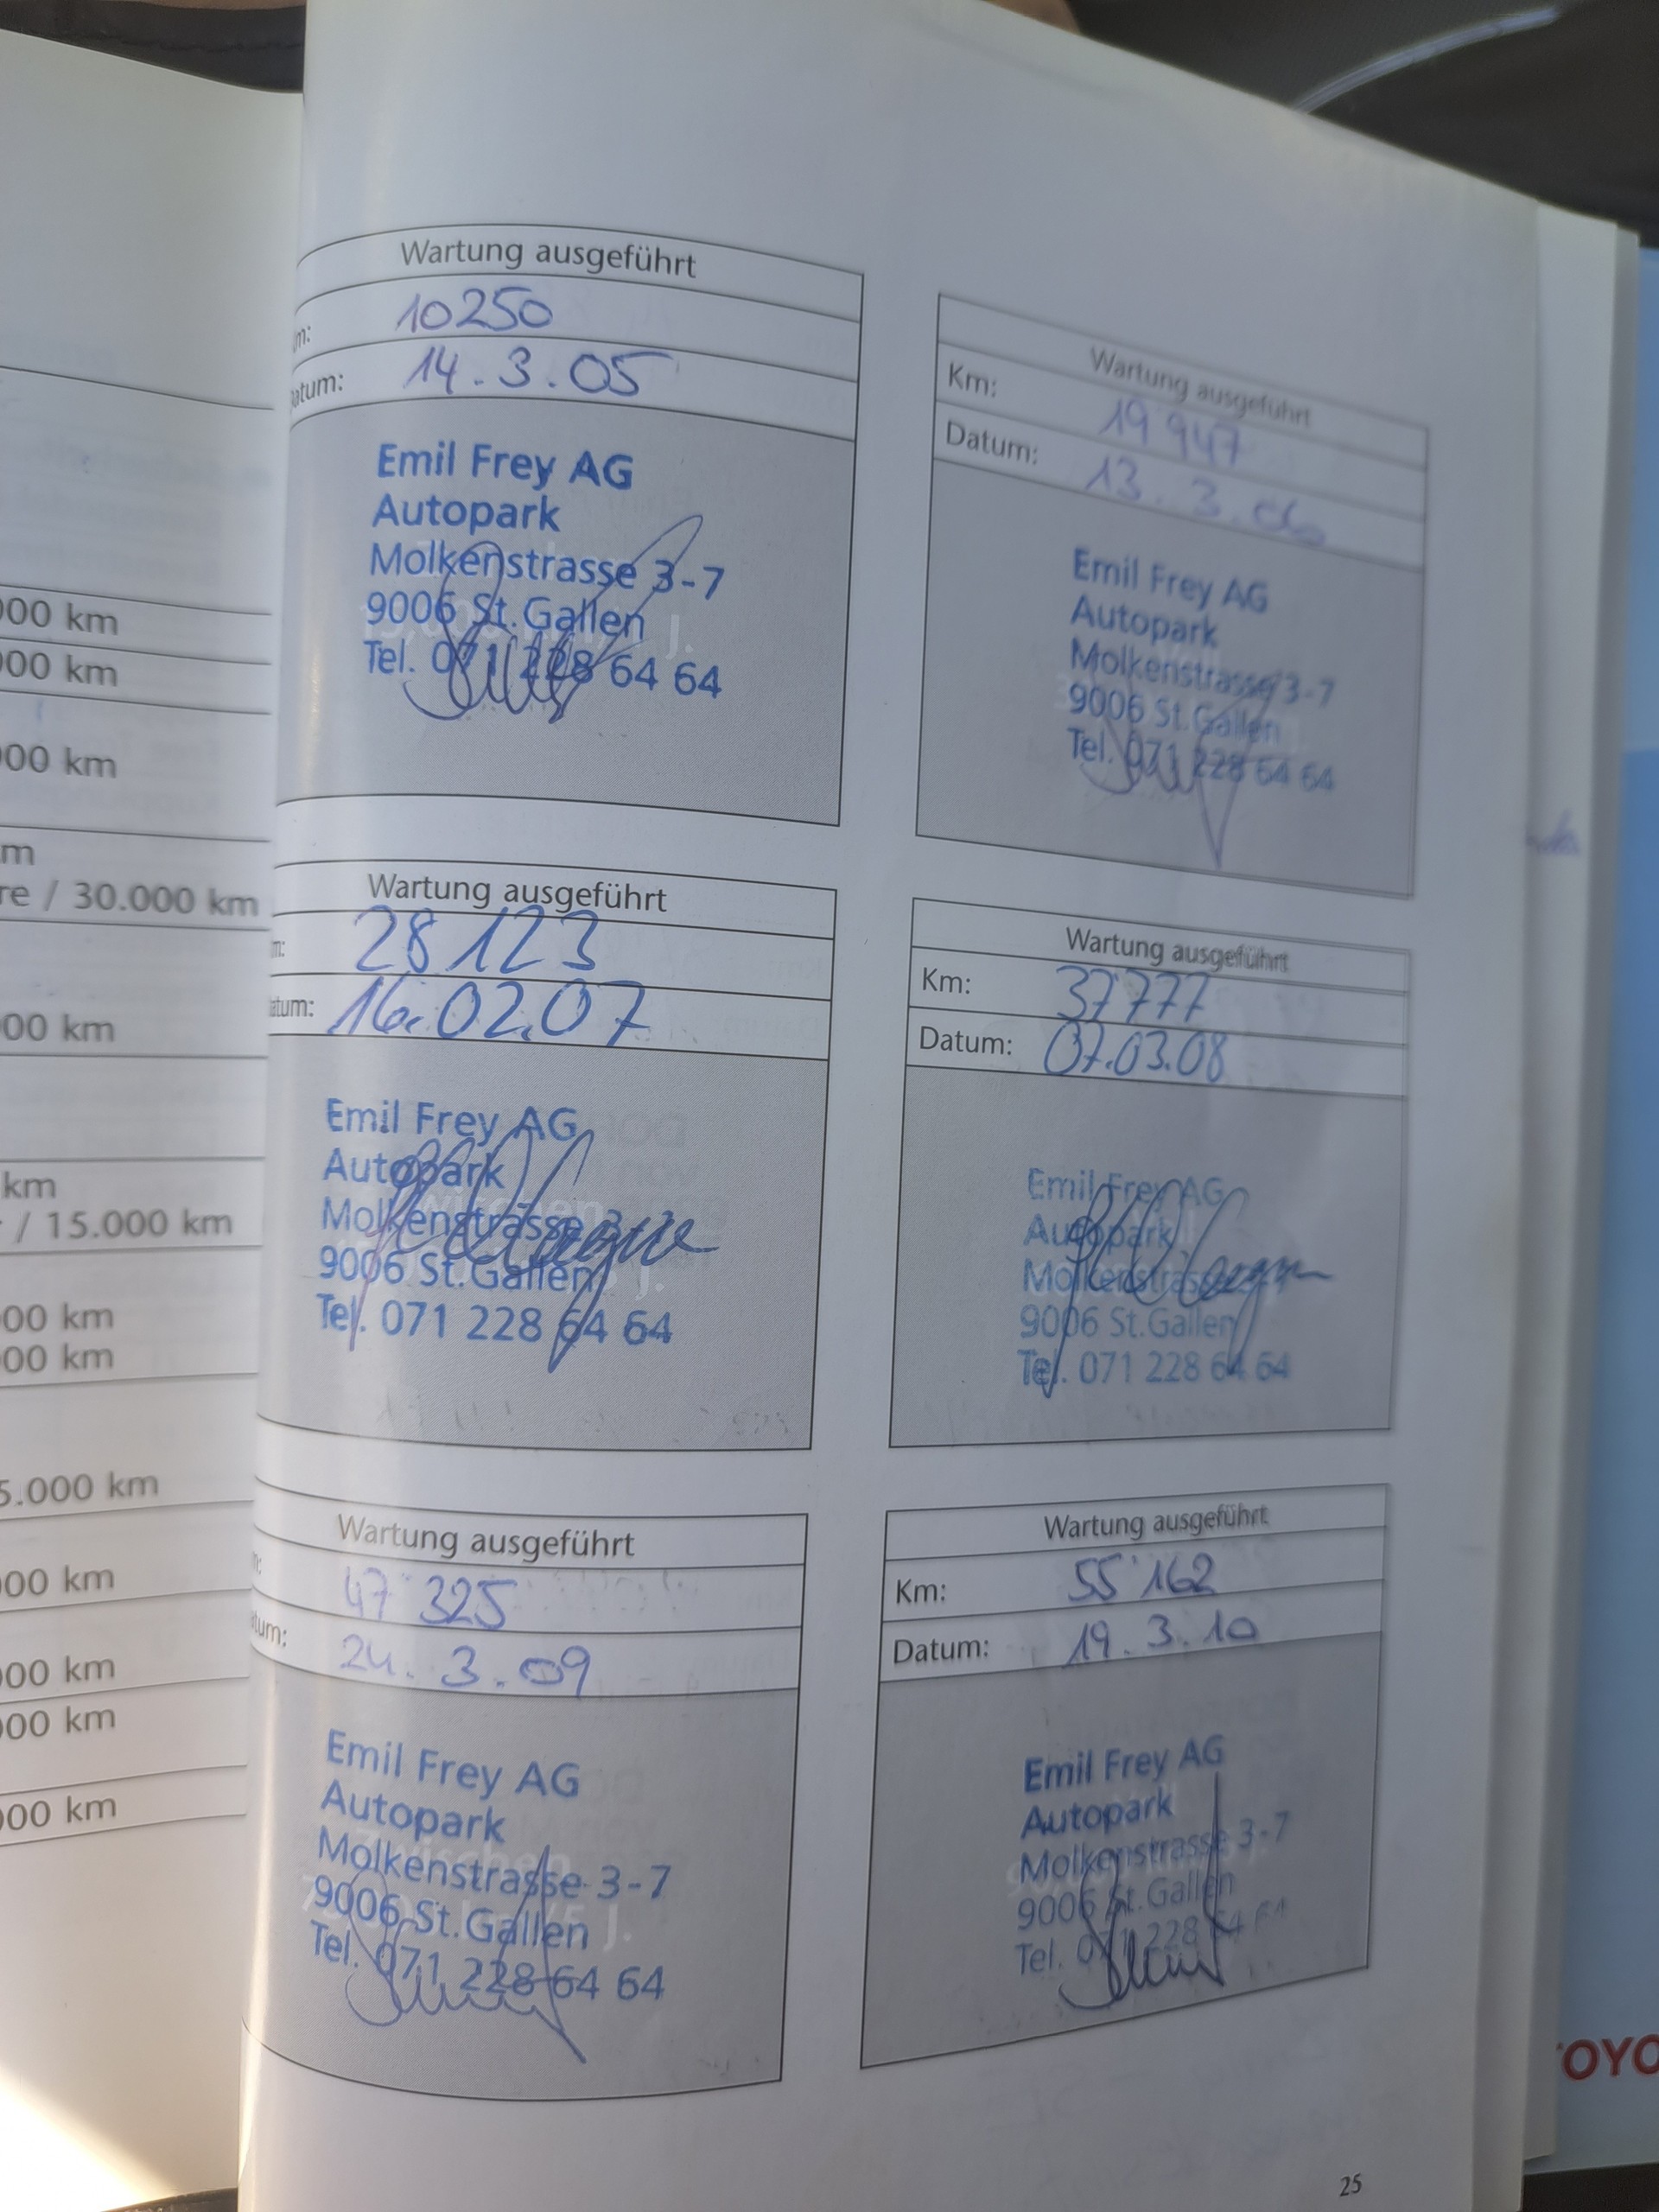 000 km
000 km
000 km
m
re / 30.000 km
000 km
km
/ 15.000 km
000 km
000 km
5.000 km
000 km
000 km
000 km
000 km
Wartung ausgeführt
m: 10250
atum: 14.3.05
Emil Frey AG
Autopark
Molkenstrasse 3-7
9006 St. Gallen
Tel. 071 228 64 64
Wartung ausgeführt
Km: 19 947
Datum: 13.3.06
Emil Frey AG
Autopark
Molkenstrasse 3-7
9006 St. Gallen
Tel. 071 228 64 64
Wartung ausgeführt
m: 28 123
atum: 16.02.07
Emil Frey AG
Autopark
Molkenstrasse 3-7
9006 St. Gallen
Tel. 071 228 64 64
Wartung ausgeführt
Km: 37'777
Datum: 07.03.08
Emil Frey AG
Autopark
Molkenstrasse
9006 St. Gallen
Tel. 071 228 64 64
Wartung ausgeführt
m: 47'325
tum: 24.3.09
Emil Frey AG
Autopark
Molkenstrasse 3-7
9006 St. Gallen
Tel. 071 228 64 64
Wartung ausgeführt
Km: 55'162
Datum: 19.3.10
Emil Frey AG
Autopark
Molkenstrasse 3-7
9006 St. Gallen
Tel. 071 228 64 64
OYO
25